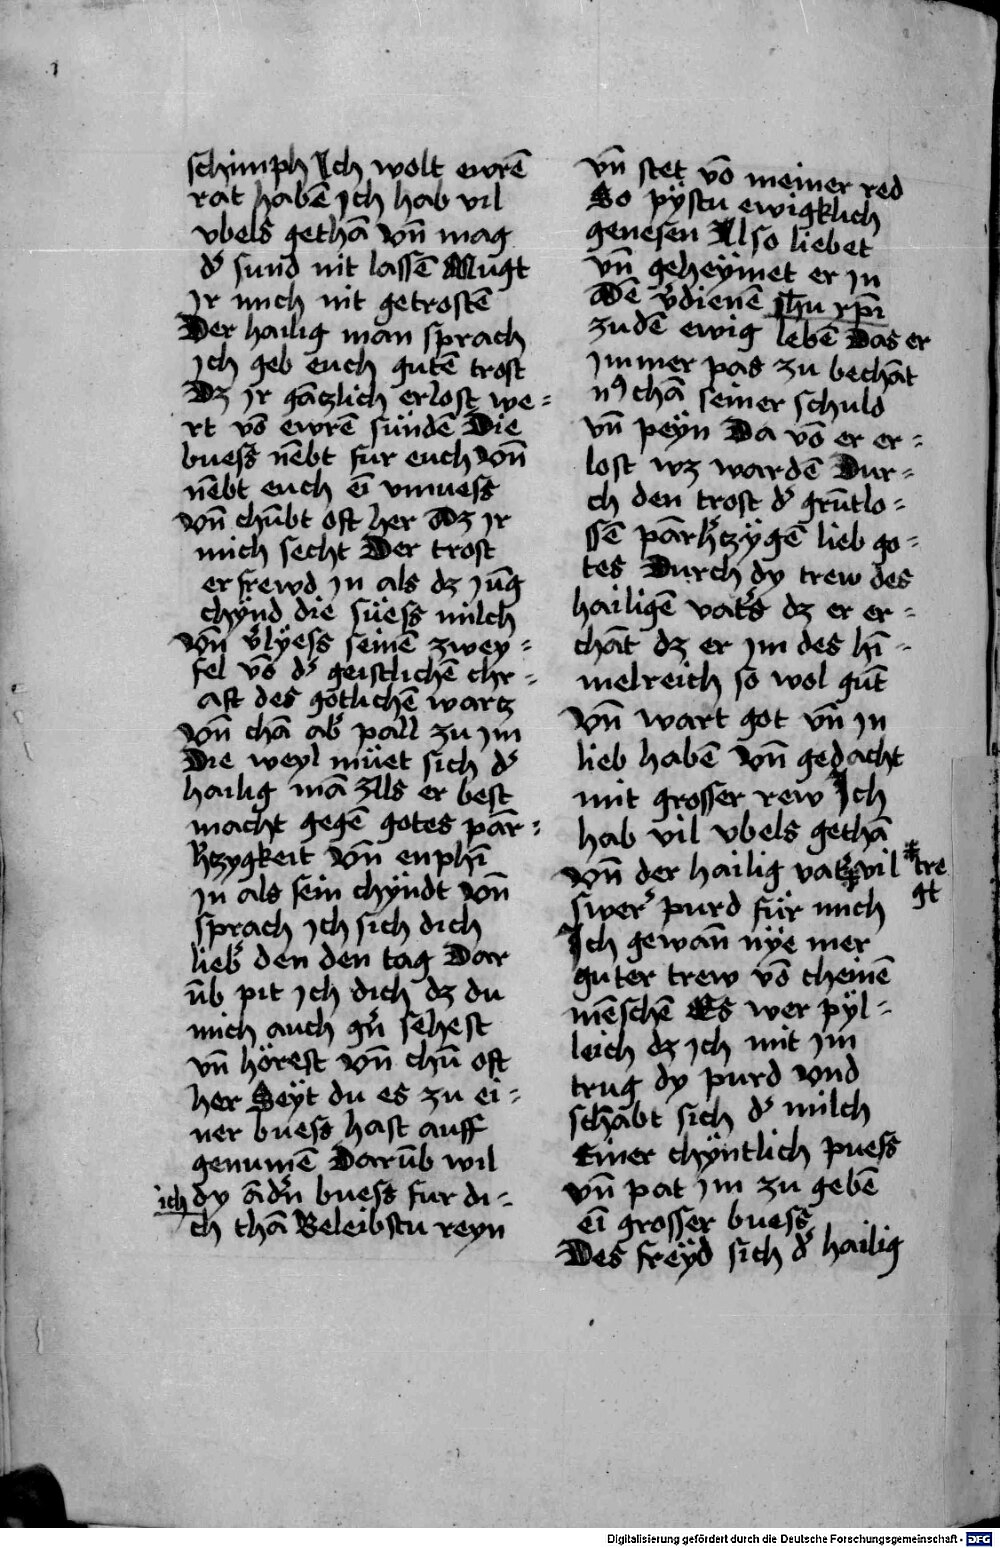 schimph Ich wolt ewrē
rat habē ich hab vil
vbels gethā vn̄ mag
d᷑ sund nit lassē Mugt
ir mich nit getrostē
Der hailig man sprach
ich geb euch gutē trost
Dz ir gātzlich erlost we=
rt vō ewrē sündē Die
buess nēbt fur euch vn̄
nēbt euch eī vnmuess
vn̄ chūbt oft her Dz ir
mich secht Der trost
erfrewd in als dz iūg
chÿnd die süess milch
vn̄ v᷑lÿess seinē zwey=
fel vō d᷑ geistlichē chr=
aft des gōtlichē wartz
vn̄ chā ab᷑ pall zu im
Die weyl müet sich d᷑
hailig mā Als er best
macht gegē gotes pār=
h᷑tzygkeit vn̄ enphī
in als sein chÿndt vn̄
sprach ich sich dich
lieb᷑ den den tag Dar
ūb pit ich dich dz du
mich auch g᷑n sehest
vn̄ hörest vn̄ chū oft
her Seÿt du es zu ei=
ner buess hast auff
genumē Darūb wil
ich dy ād᷑n buess fur di=
ch thā Beleibstu reyn
vn̄ stet vō meiner red
So pÿstu ewigklich
genesen Also liebet
vn̄ geheÿmet er in
Dē v᷑dienē ihu xp̄i
zudē ewig lebē Das er
immer pas zu bechāt
nꝰ chā seiner schuld
vn̄ peÿn Da vō er er=
lost wz wardē Dur=
ch den trost d᷑ grūtlo=
ssē pārh᷑tzÿgē lieb go=
tes Durch dy trew des
hailigē vat᷑s dz er er=
chāt dz er im des hī=
melreich so wol gūt
vn̄ wart got vn̄ in
lieb habē vn̄ gedacht
mit grosser rew Ich
hab vil vbels gethā
vn̄ der hailig vat᷑ vil tre
gt
swer᷑ purd für mich
Ich gewan̄ nÿe mer
guter trew vō cheinē
mēschē Es wer pÿl=
leich dz ich mit im
trug dy purd vnd
schābt sich d᷑ milch
Einer chÿntlich puess
vn̄ pat im zu gebē
eī grosser buess
Des freÿd sich d᷑ hailig
Digitalisierung gefördert durch die Deutsche Forschungsgemeinschaft - DFG